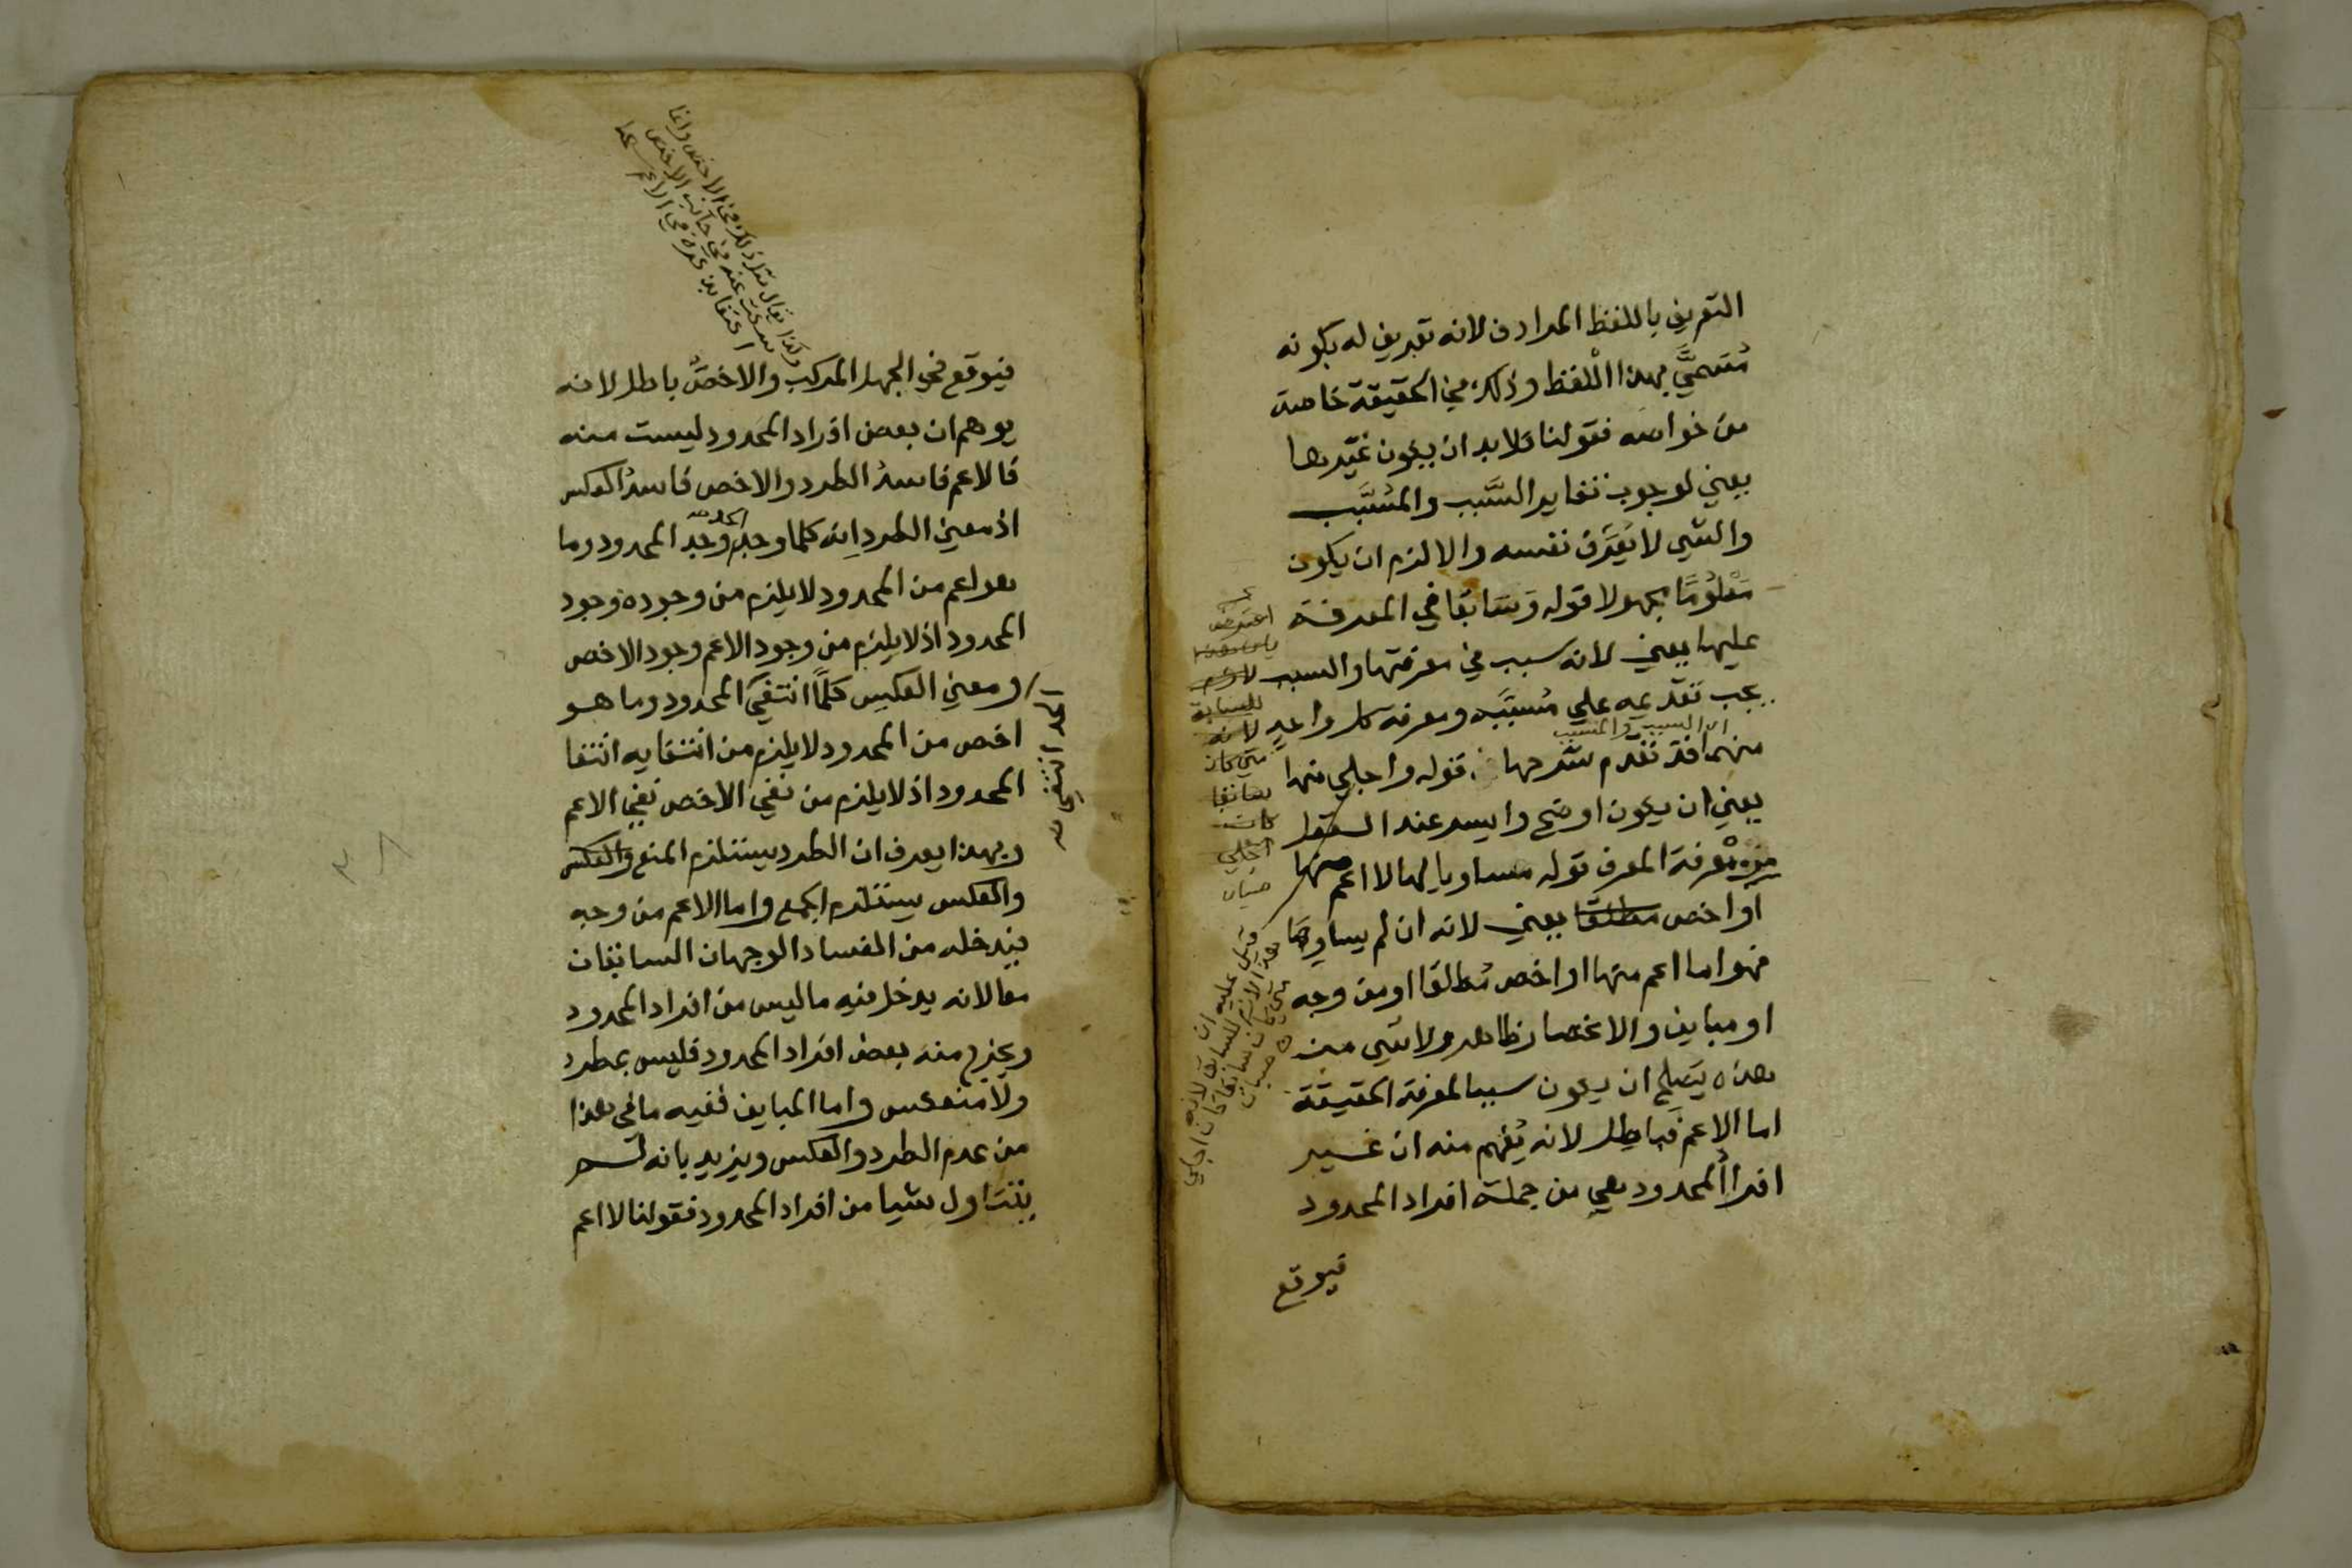 التعريف باللفظ المرادف لانه تعريف له بكونه
مُسَمَّيً بهذا اللفظ وذلك في الحقيقة خاصة
من خواصه فقولنا ولا بد ان يكون غَيْرها
يعني لوجوب تغاير السَّبب والمُسَبَّب
والشي لا يُعَرِّف نفسه والا لزم ان يكون
مَعْلُومًا مجهولا قوله وسَابقا في المعرفة
عليها يعني لانه سبب في معرفتها والسبب
يجب تقديمه علي مُسَبَّبه ومعرفة كل واحدٍ
اي السبب والمسبب
منهما قد تقدم شرحها قوله واجلي منها
يعني ان يكون اوضح وايسر عند العقل
من معرفة المعرف قوله مساويا لها لا اعم منها
او اخص مطلقا يعني لانه ان لم يساوِها
فهو اما اعم منها او اخص مُطلقا او من وجه
او مباين والانحصار ظاهر ولا شي من
هذه يَصلح ان يكون سببا لمعرفة الحقيقة
اما الاعم فباطل لانه يُفهم منه ان غير
افراد المحدود هي من جملة افراد المحدود
فيوقع
اعترض
للسابق
لانه
متي كان
سابقا
كان
اجلي
صبان
قيل عليه ان
هذا لازم للسابق لانه
متي كان سابقا كان اجلي
ه صبان
ولذا يقال نقل ذلك في الاخص وانما
سكت عنه في جانب الاخص
اكتفا بذكره في الاعم
فيوقع في الجهل المركب والاخصُّ باطل لانه
يوهم ان بعض افراد المحدود ليست منه
فالاعم فاسدُ الطرد والاخص فاسدُ العكس
اذ معني الطردِ انه كلما وجد الحد وجد المحدود وما
هو اعم من المحدود لا يلزم من وجوده وجود
المحدود اذ لا يلزم من وجود الاعم وجود الاخص
ومعني العكسِ كلمَّا انتفيَ المحدود وما هو
الحد انتفي
اخص من المحدود لا يلزم من انتفايه انتفا
المحدود اذ لا يلزم من نفي الاخص نفي الاعم
وبهذا يعرف ان الطرد يستلزم المنع والعكس
والعكس يستلزم الجمع واما الاعم من وجه
فيدخله من الفساد الوجهان السابقان
معا لانه يدخل فيه ما ليس من افراد المحدود
ويخرج منه بعض افراد المحدود فليس بمطرد
ولا منعكس واما المباين ففيه ما في هذا
من عدم الطرد والعكس ويزيد بانه لم
يتناول شيا من افراد المحدود فقولنا لا اعم